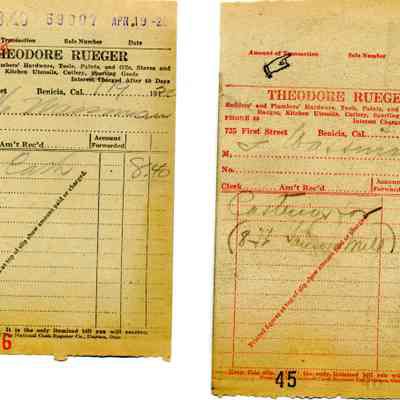 8/40 69007 APR. 19 - 2
Transaction Sale Number Date
THEODORE RUEGER
Builders' Hardware, Tools, Paints, and Oils, Stoves and
Kitchen Utensils, Cutlery, Sporting Goods
Interest Charged After 60 Days
Benicia, Cal.
Am't Rec'd
Account
Forwarded
Cash 8.40
Printed figures at top of slip show amount paid or charged.
It is the only itemized bill you will receive.
National Cash Register Co., Dayton, Ohio
6
Amount of Transaction Sale Number
THEODORE RUEGER
Builders' and Plumbers' Hardware, Tools, Paints, and
Ranges, Kitchen Utensils, Cutlery, Sporting
PHONE Interest Charged
725 First Street Benicia, Cal.
M.
No.
Clerk Am't Rec'd
Printed figures at top of slip show amount paid or charged.
Keep this slip. It is the only itemized bill you
45